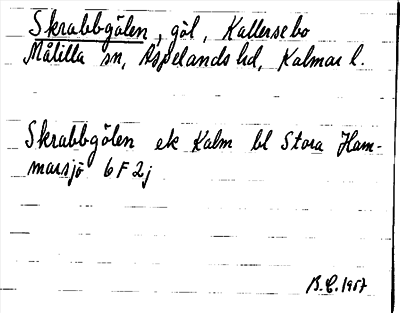 Skrabbgölen, göl, Kallersebo
Målilla sn, Aspelands hd, Kalmar l.
Skrabbgölen ek Kalm bl Stora Ham-
marsjö 6F2j
B.E. 1957